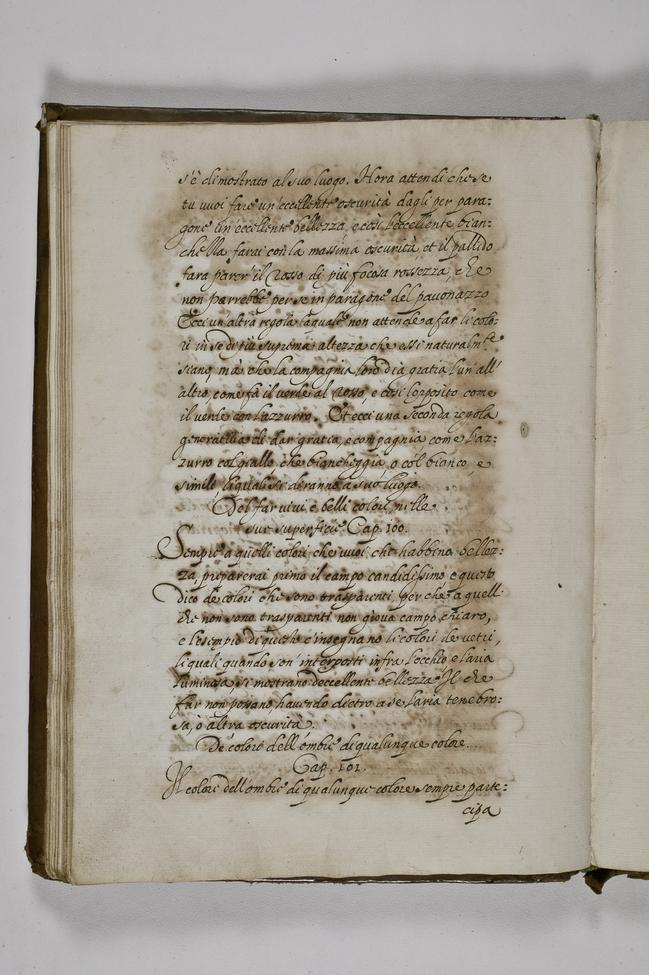 s'è dimostrato al suo luogo. Hora attendi che se
tu vuoi fare un'eccellente oscurità dagli per para:
gone un'eccellente bellezza, e così l'eccellente bian:
chezza farai con la massima oscurità, et il pallido
fara parer' il rosso di più focosa rossezza, che
non parrebbe per se in paragone del pauonazzo
Ecci un'altra regola laquale non attende a far li colo:
ri in se di più suprema altezza che essi naturalm.te
siano, mà che la compagnia loro dia gratia l'un all'
altro, come fà il verde al rosso, e così l'opposito come
il verde con l'azzurro. Et ecci una seconda regola
generatiua di dar gratia, e compagnia come l'az:
zurro col giallo che biancheggia, o col bianco, e
simili liquali si deranno a suo luogo.
Del far viui e belli colori nelle
sue superficie Cap. 100.
Sempre a quelli colori che vuoi, che habbino bellez:
za, preparerai primo il campo candidissimo e questo
dico de colori che sono trasparenti, per che a quelli
che non sono trasparenti non gioua campo chiaro,
e l'esempio di questo c'insegnano li colori de vetri,
li quali quando son' interposti infra l'occhio e l'aria
luminosa, si mostrano d'eccellente bellezza. Il che
far non possono, hauendo dietro a se l'aria tenebro:
sa, ò altra oscurità.
De colori dell'ombre di qualunque colore.
Cap. 101.
Il colore dell'ombre di qualunque colore sempre parte:
cipa